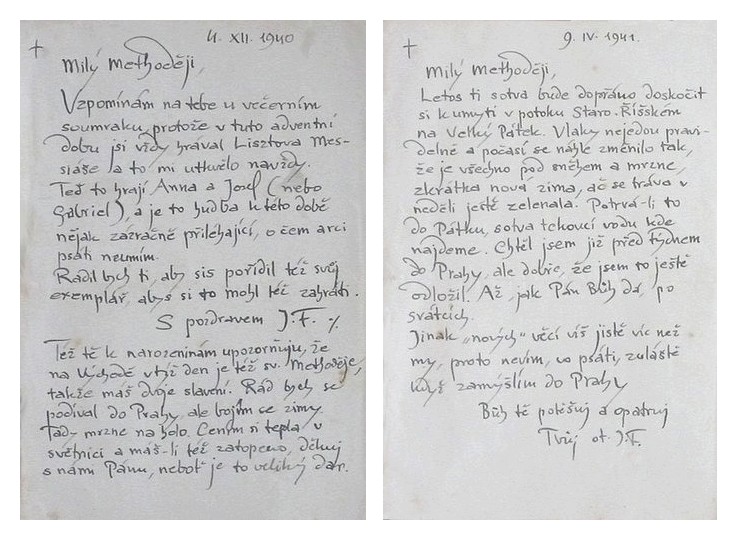 4. XII. 1940
Milý Methoději,
Vzpomínám na tebe u večerním
soumraku protože v tuto adventní
dobu jsi vždy hrával Lisztova Mes-
siáše a to mi utkvělo navždy.
Teď to hrají Anna a Josef (nebo
Gabriel), a je to hudba k této době
nějak zázračně přiléhající, o čem arci
psáti neumím.
Rádil bych ti, aby sis pořídil též svůj
exemplář, abys si to mohl též zahráti.
S pozdravem J.F. %
Též tě k narozeninám upozorňuji, že
na Východě týž den je též sv. Methoděje,
takže máš dvoje slavení. Rád bych se
podíval do Prahy, ale bojím se zimy.
Tady mrzne na holo. Cením si tepla v
světnici a máš-li též zatopeno, děkuj
s námi Pánu, neboť je to veliký dar.
9. IV. 1941.
Milý Methoději,
Letos ti sotva bude dopřáno doskočit
si k umytí v potoku Staro-Říšském
na Velký Pátek. Vlaky nejedou pravi-
delně a počasí se náhle změnilo tak,
že je všechno pod sněhem a mrzne,
zkrátka nová zima, ač se tráva v
neděli ještě zelenala. Potrvá-li to
do Pátku, sotva tekoucí vodu kde
najdeme. Chtěl jsem již před týdnem
do Prahy, ale dobře, že jsem to ještě
odložil. Až, jak Pán Bůh dá, po
svátcích.
Jinak „nových" věcí víš jistě víc než
my, proto nevím, co psáti, zvláště
když zamýšlím do Prahy
Bůh tě potěšuj a opatruj
Tvůj ot. J.F.